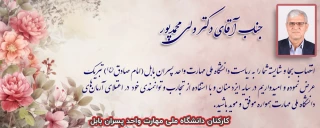 جناب آقای دکتر ولی محمدپور
انتصاب بجا و شایسته شما را به ریاست دانشگاه ملی مهارت واحد پسران بابل (امام صادق(ع)) تبریک
عرض نموده و امیدواریم در سایه ایزد منان و با استفاده از تجارب و توانمندی خود در اعتلای آرمان‌های
دانشگاه ملی مهارت همواره موفق و موید باشید.
کارکنان دانشگاه ملی مهارت واحد پسران بابل